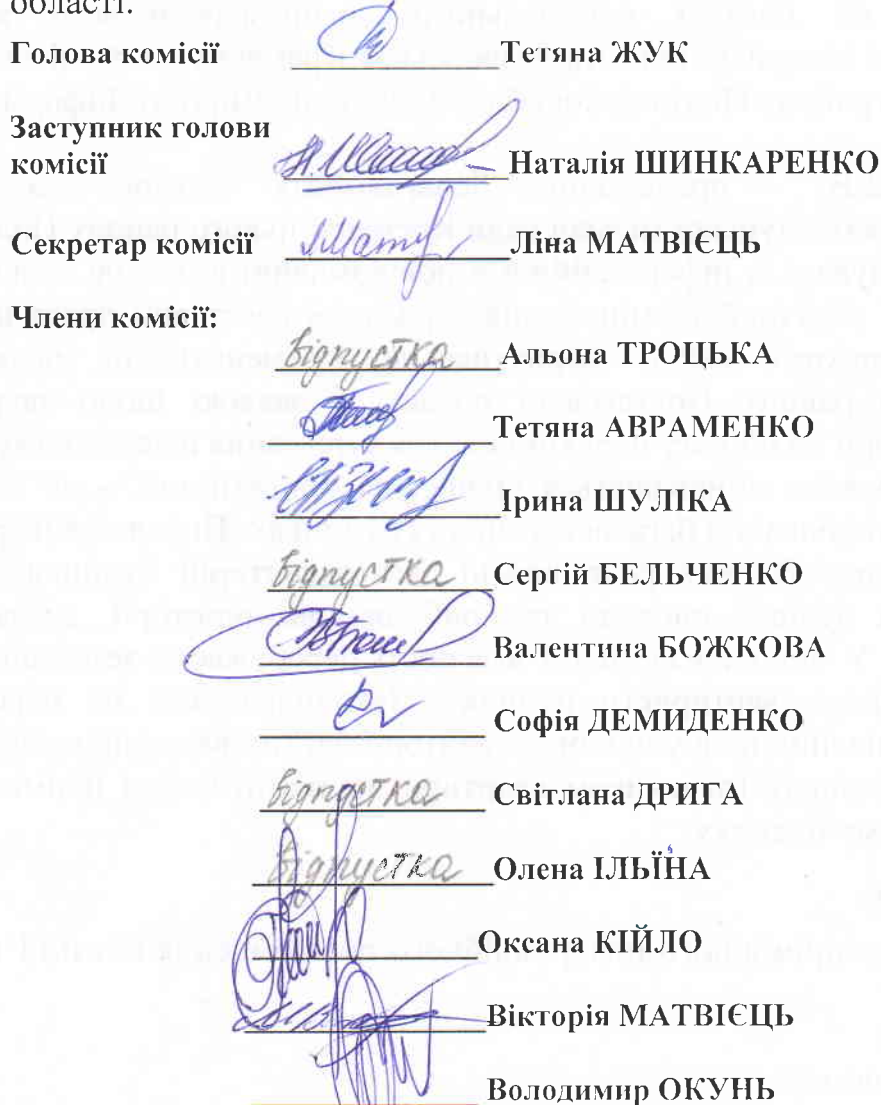 області.
Голова комісії Тетяна ЖУК
Заступник голови
комісії Наталія ШИНКАРЕНКО
Секретар комісії Ліна МАТВІЄЦЬ
Члени комісії:
відпустка Альона ТРОЦЬКА
Тетяна АВРАМЕНКО
Ірина ШУЛІКА
відпустка Сергій БЕЛЬЧЕНКО
Валентина БОЖКОВА
Софія ДЕМИДЕНКО
відпустка Світлана ДРИГА
відпустка Олена ІЛЬЇНА
Оксана КІЙЛО
Вікторія МАТВІЄЦЬ
Володимир ОКУНЬ